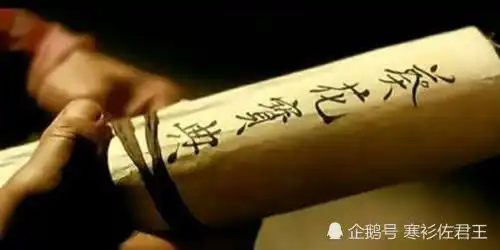 葵花寶典
企鹅号 寒衫佐君王